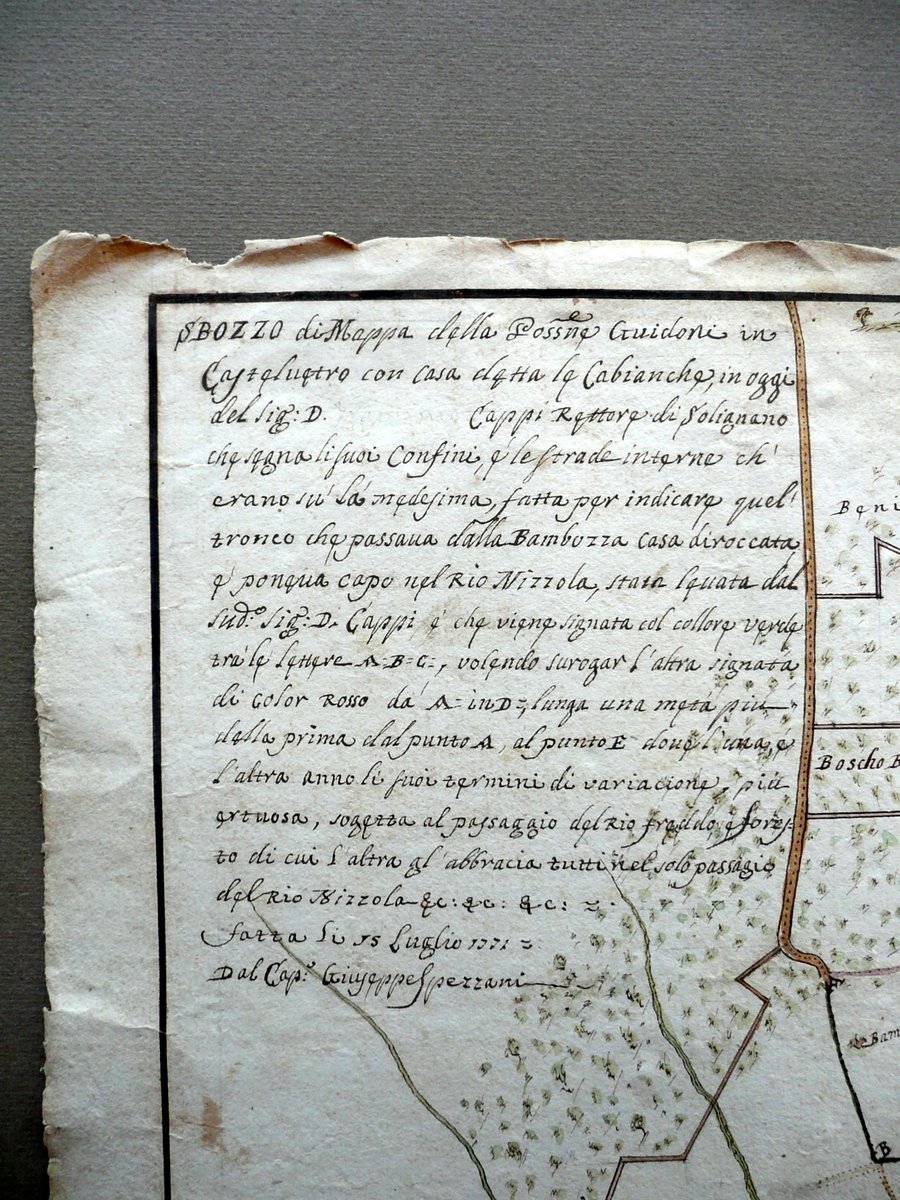 SBOZZO di Mappa della Possne Guidoni in
Casteluetro con casa detta le Cabianche, in oggi
del Sig: D. Cappi Rettore di Solignano
che segna li suoi Confini, e le strade interne ch'
erano su' la medesima, fatta per indicare quel'
tronco che passaua dalla Bambozza casa diroccata
e' poneua capo nel Rio Nizzola, stata leuata dal
sud.o Sig: D. Cappi e' che viene signata col collore verde
tra' le lettere A=B=C=, volendo surogar l'altra signata
di Color Rosso da' A= in D=, lunga una metà più
della prima dal punto A, al punto E doue l'una, e
l'altra anno li suoi termini di variacione, più
ertuosa, sogetta al passaggio del Rio freddo, e fores=
to di cui l'altra gl'abbracia tutti nel solo passagio
del Rio Nizzola &c: &c: &c:
Fatta li 15 Luglio 1771
Dal Cap.o Giuseppe Spezzani
Beni
Boscho B
Le Bam
A
B